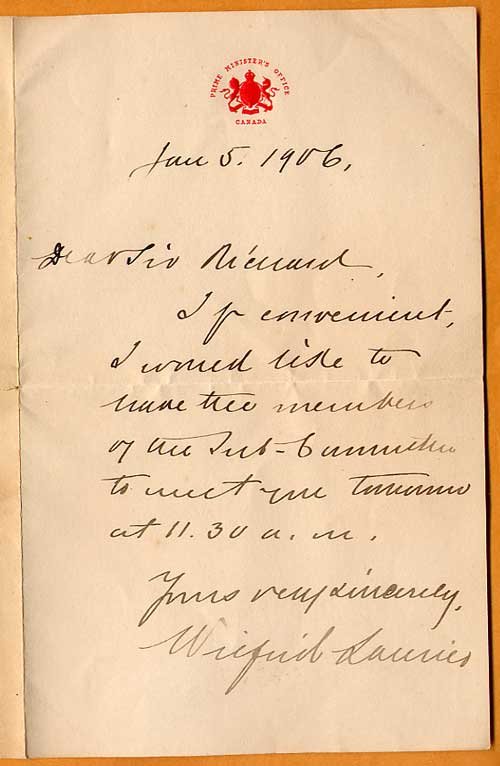 PRIME MINISTER'S OFFICE
CANADA
Jan 5. 1906,
Dear Sir Richard,
If convenient,
I would like to
have the members
of the Sub-Committee
to meet you tomorrow
at 11.30 a.m.
Yours very sincerely,
Wilfrid Laurier